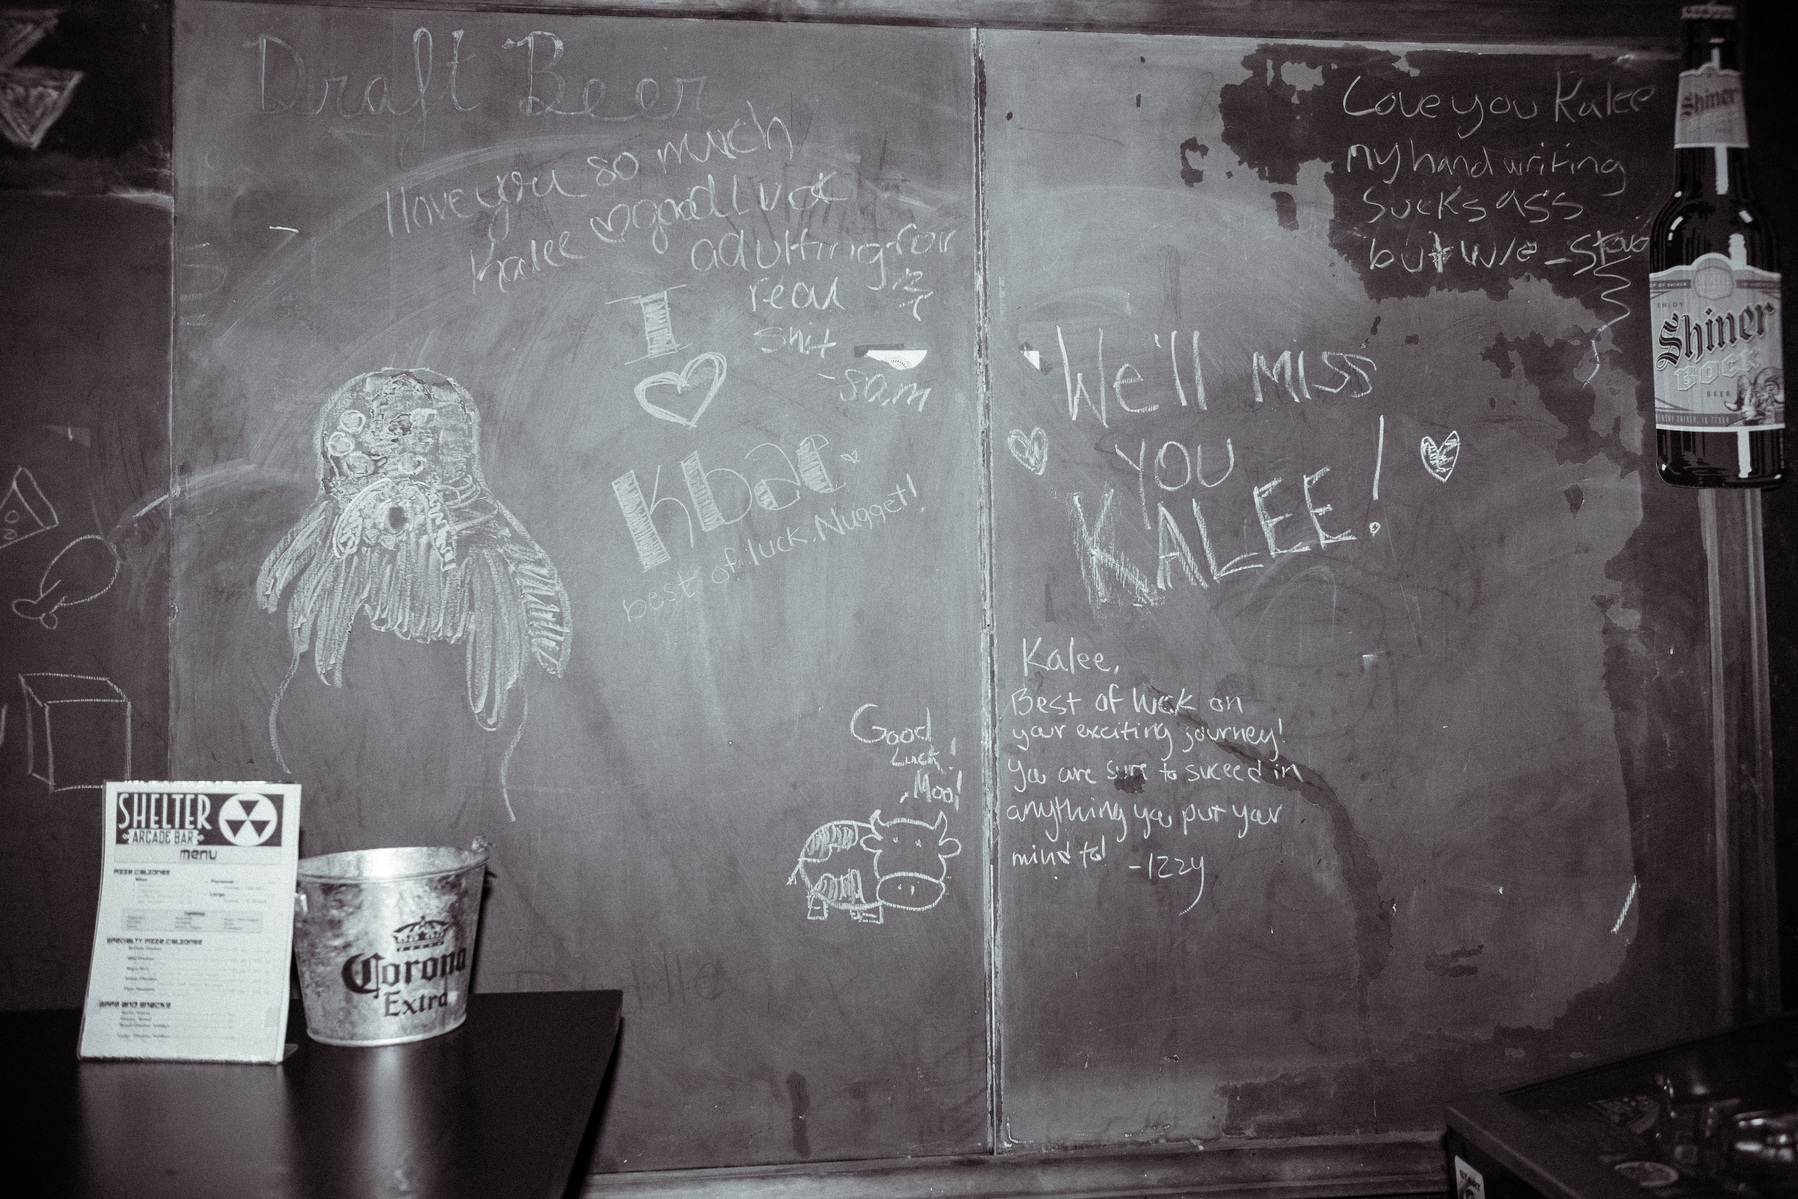 Draft Beer
I love you so much
Kalee good luck
adulting for
real
shit
-sam
I
Kbae
best of luck, Nugget!
Good
Luck!
Moo!
Love you Kalee
my handwriting
sucks ass
but w/e -
We'll miss
you
KALEE!
Kalee,
Best of luck on
your exciting journey!
You are sure to suceed in
anything you put your
mind to!
-Izzy
Shiner
ENJOY
Shiner
BOCK
BEER
SHELTER
ARCADE BAR
menu
PIZZA CALZONES
SPECIALTY PIZZA CALZONES
Corona
Extra